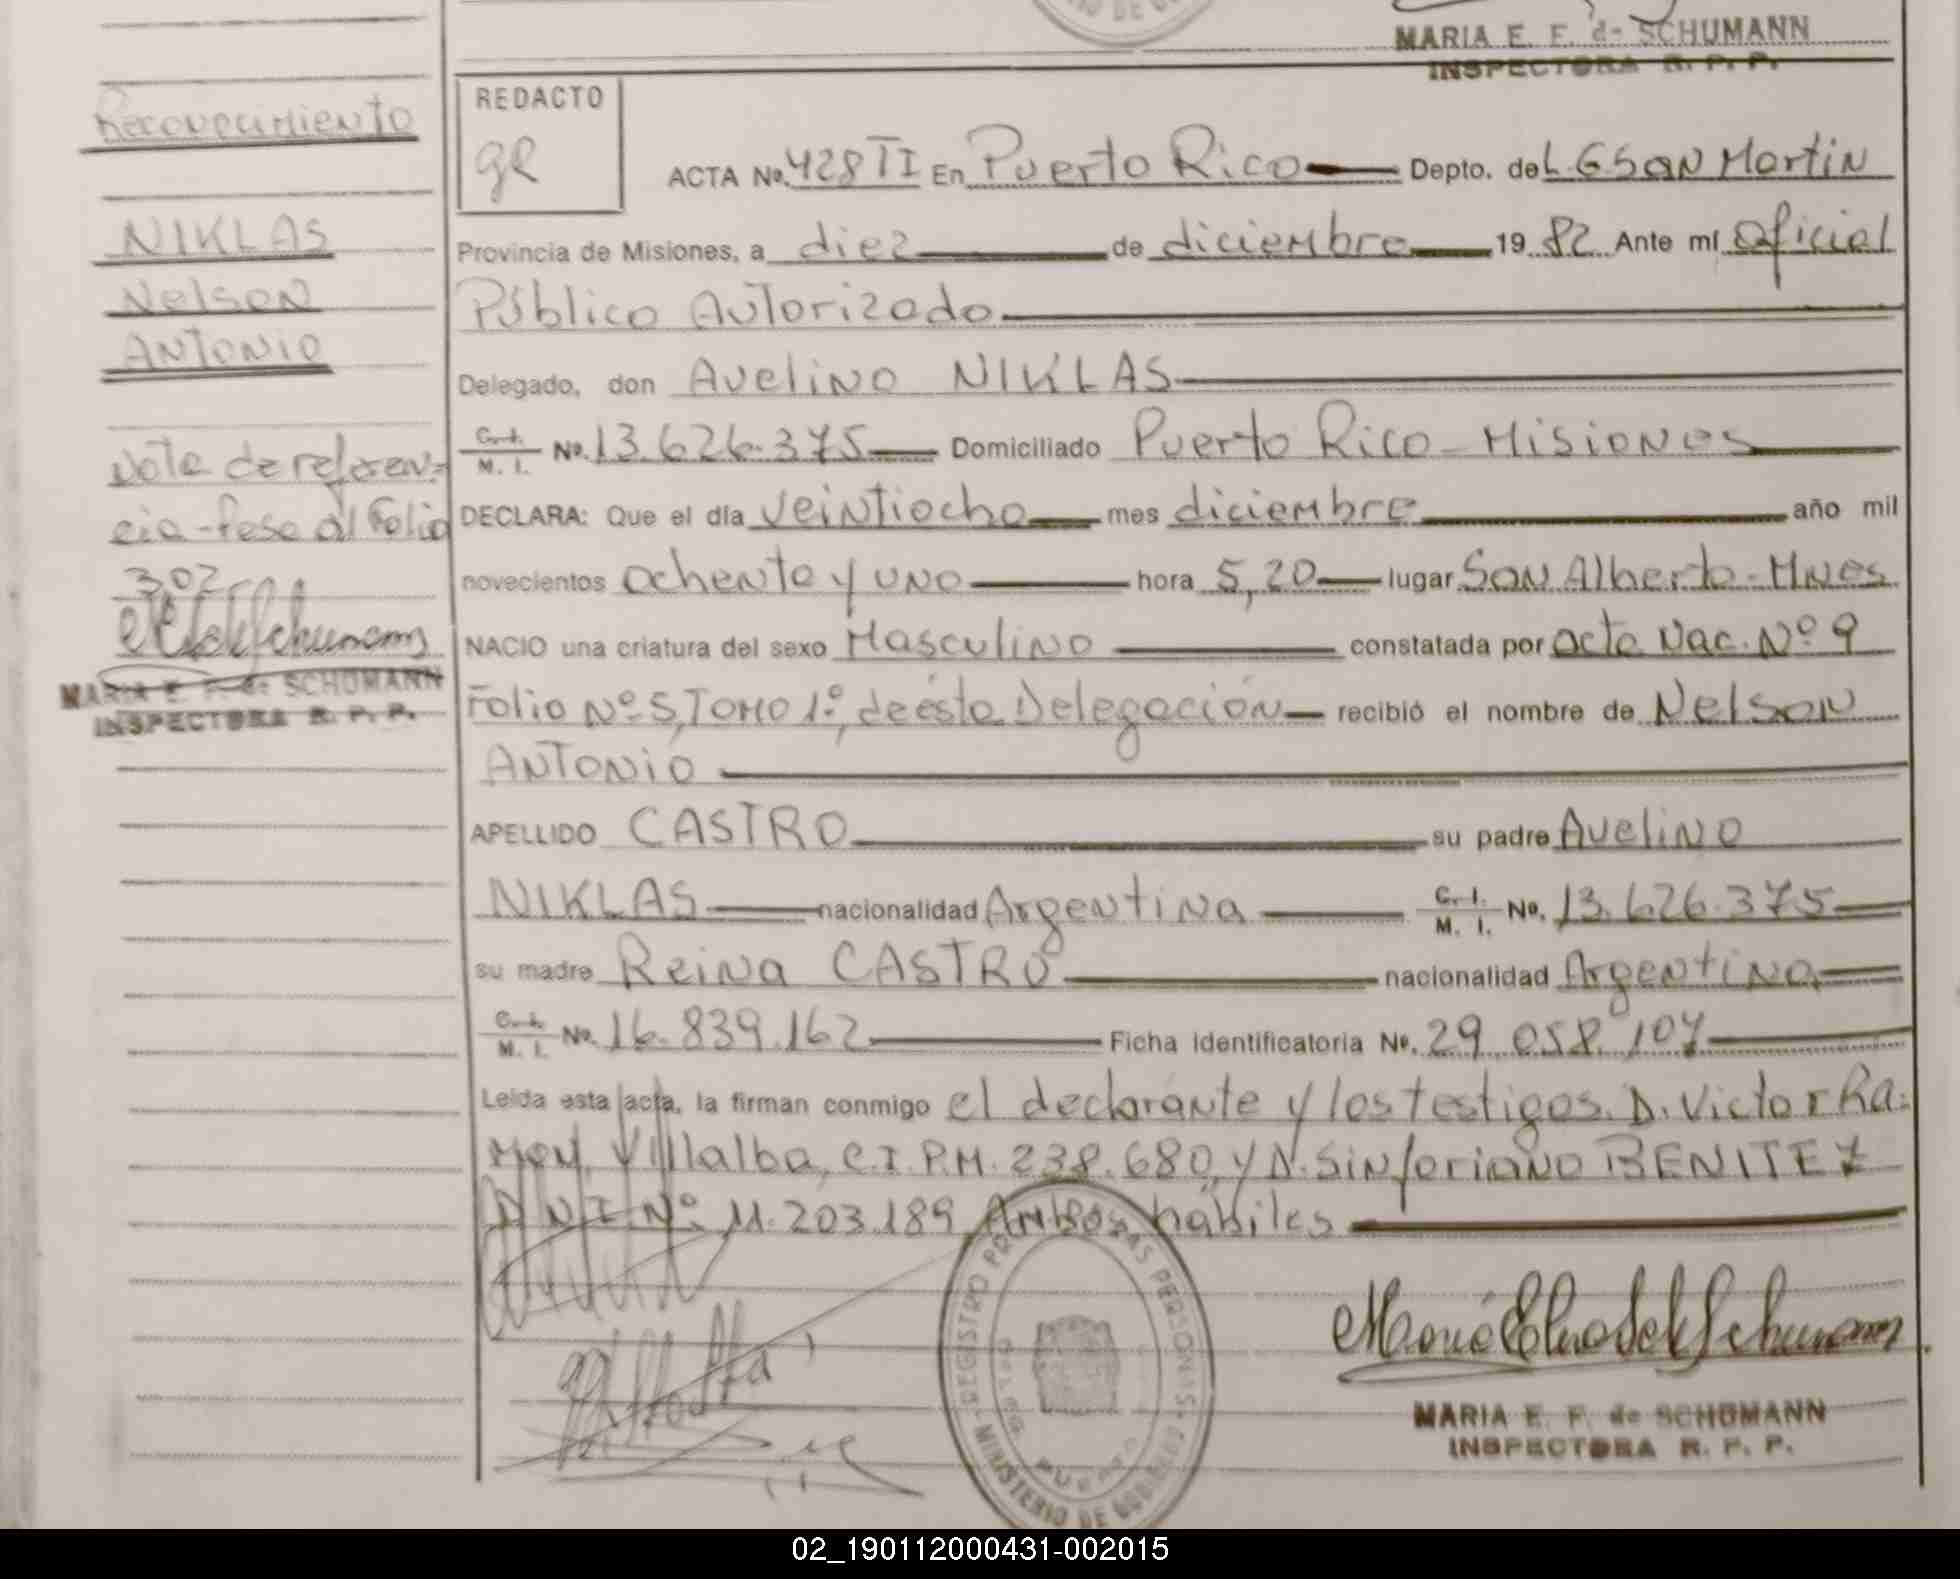 MARIA E. F. de SCHUMANN
INSPECTORA R. P. P.
Reconocimiento
NIKLAS
Nelson
ANTONIO
Nota de referen=
cia-Pase al Folio
302
MARIA E. F. de SCHUMANN
INSPECTORA R. P. P.
REDACTO
ACTA No. 428 TI En Puerto Rico Depto. de L. G San Martin
Provincia de Misiones, a diez de diciembre 19 82 Ante mí Oficial
Público Autorizado
Delegado, don Avelino NIKLAS
C. I. M. I. No. 13.626.375 Domiciliado Puerto Rico - Misiones
DECLARA: Que el día veintiocho mes diciembre año mil
novecientos ochenta y uno hora 5,20 lugar San Alberto-Mnes
NACIO una criatura del sexo Masculino constatada por acta Nac. Nº 9
Folio Nº 5, TOMO 1º, de ésta Delegación recibió el nombre de Nelson
ANTONIO
APELLIDO CASTRO su padre Avelino
NIKLAS nacionalidad Argentina C. I. M. I. No. 13.626.375
su madre Reina CASTRO nacionalidad Argentina
C. I. M. I. No. 16.839.162 Ficha identificatoria No. 29.058.107
Leída esta acta, la firman conmigo el declarante y los testigos. D. Victor Ra=
mon Villalba, C.I. P.M. 238.680, y D. Sinforiano BENITEZ
D N I Nº 11.203.189 Ambos hábiles
REGISTRO PERSONAS
MINISTERIO DE GOBIERNO
MARIA E. F. de SCHUMANN
INSPECTORA R. P. P.
02_190112000431-002015